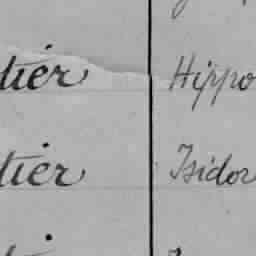 tiér Hippo
tiér Isidor